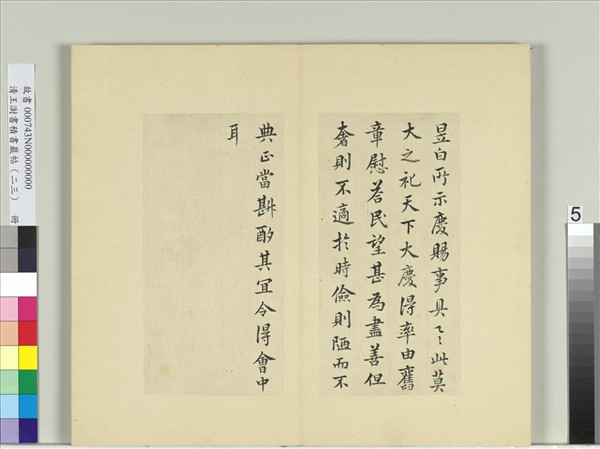 昱白所示慶賜事具之此莫
大之祀天下大慶得率由舊
章慰荅民望甚為盡善但
奢則不適於時儉則陋而不
典正當斟酌其宜令得會中
耳
故書 000743N000000000
清王澍書積書巖帖(二三) 冊
5